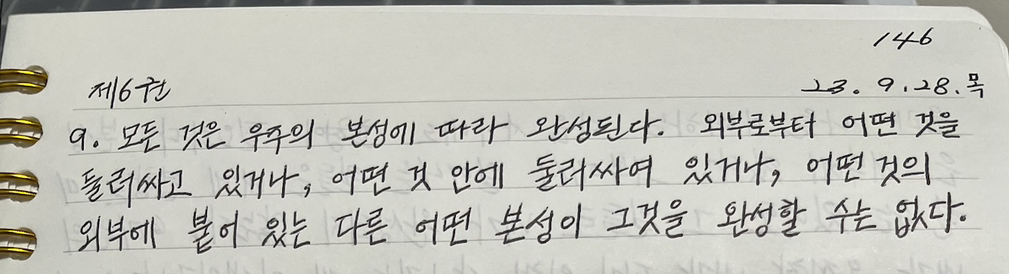 146
제6권 23. 9. 28. 목
9. 모든 것은 우주의 본성에 따라 완성된다. 외부로부터 어떤 것을
둘러싸고 있거나, 어떤 것 안에 둘러싸여 있거나, 어떤 것의
외부에 붙어 있는 다른 어떤 본성이 그것을 완성할 수는 없다.